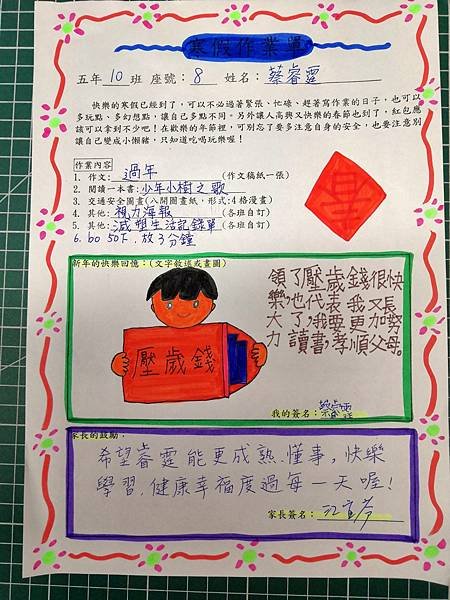 寒假作業單
五年10班 座號：8 姓名：蔡睿霊
快樂的寒假已經到了，可以不必過著緊張、忙碌、趕著寫作業的日子，也可以
多玩點、多幻想點，讓自己多點不同。另外讓人高興又快樂的春節也到了，紅包應
該可以拿到不少吧！在歡樂的年節裡，可別忘了要多注意自身的安全，也要注意別
讓自己變成小懶豬，只知道吃喝玩樂喔！
作業內容
1. 作文：過年(作文稿紙一張)
2. 閱讀一本書：少年小樹之歌
3. 交通安全圖畫(八開圖畫紙，形式：4格漫畫)
4. 其他：視力海報(各班自訂)
5. 其他：減塑生活記錄單(各班自訂)
6. bo 50下，放3分鐘
春
新年的快樂回憶：(文字敘述或畫圖)
領了壓歲錢很快
樂，也代表我又長
大了，我要更加努
力讀書，孝順父母。
壓歲錢
我的簽名：蔡睿霊
家長的鼓勵：
希望睿霊能更成熟.懂事，快樂
學習.健康幸福度過每一天喔！
家長簽名：江宜芳